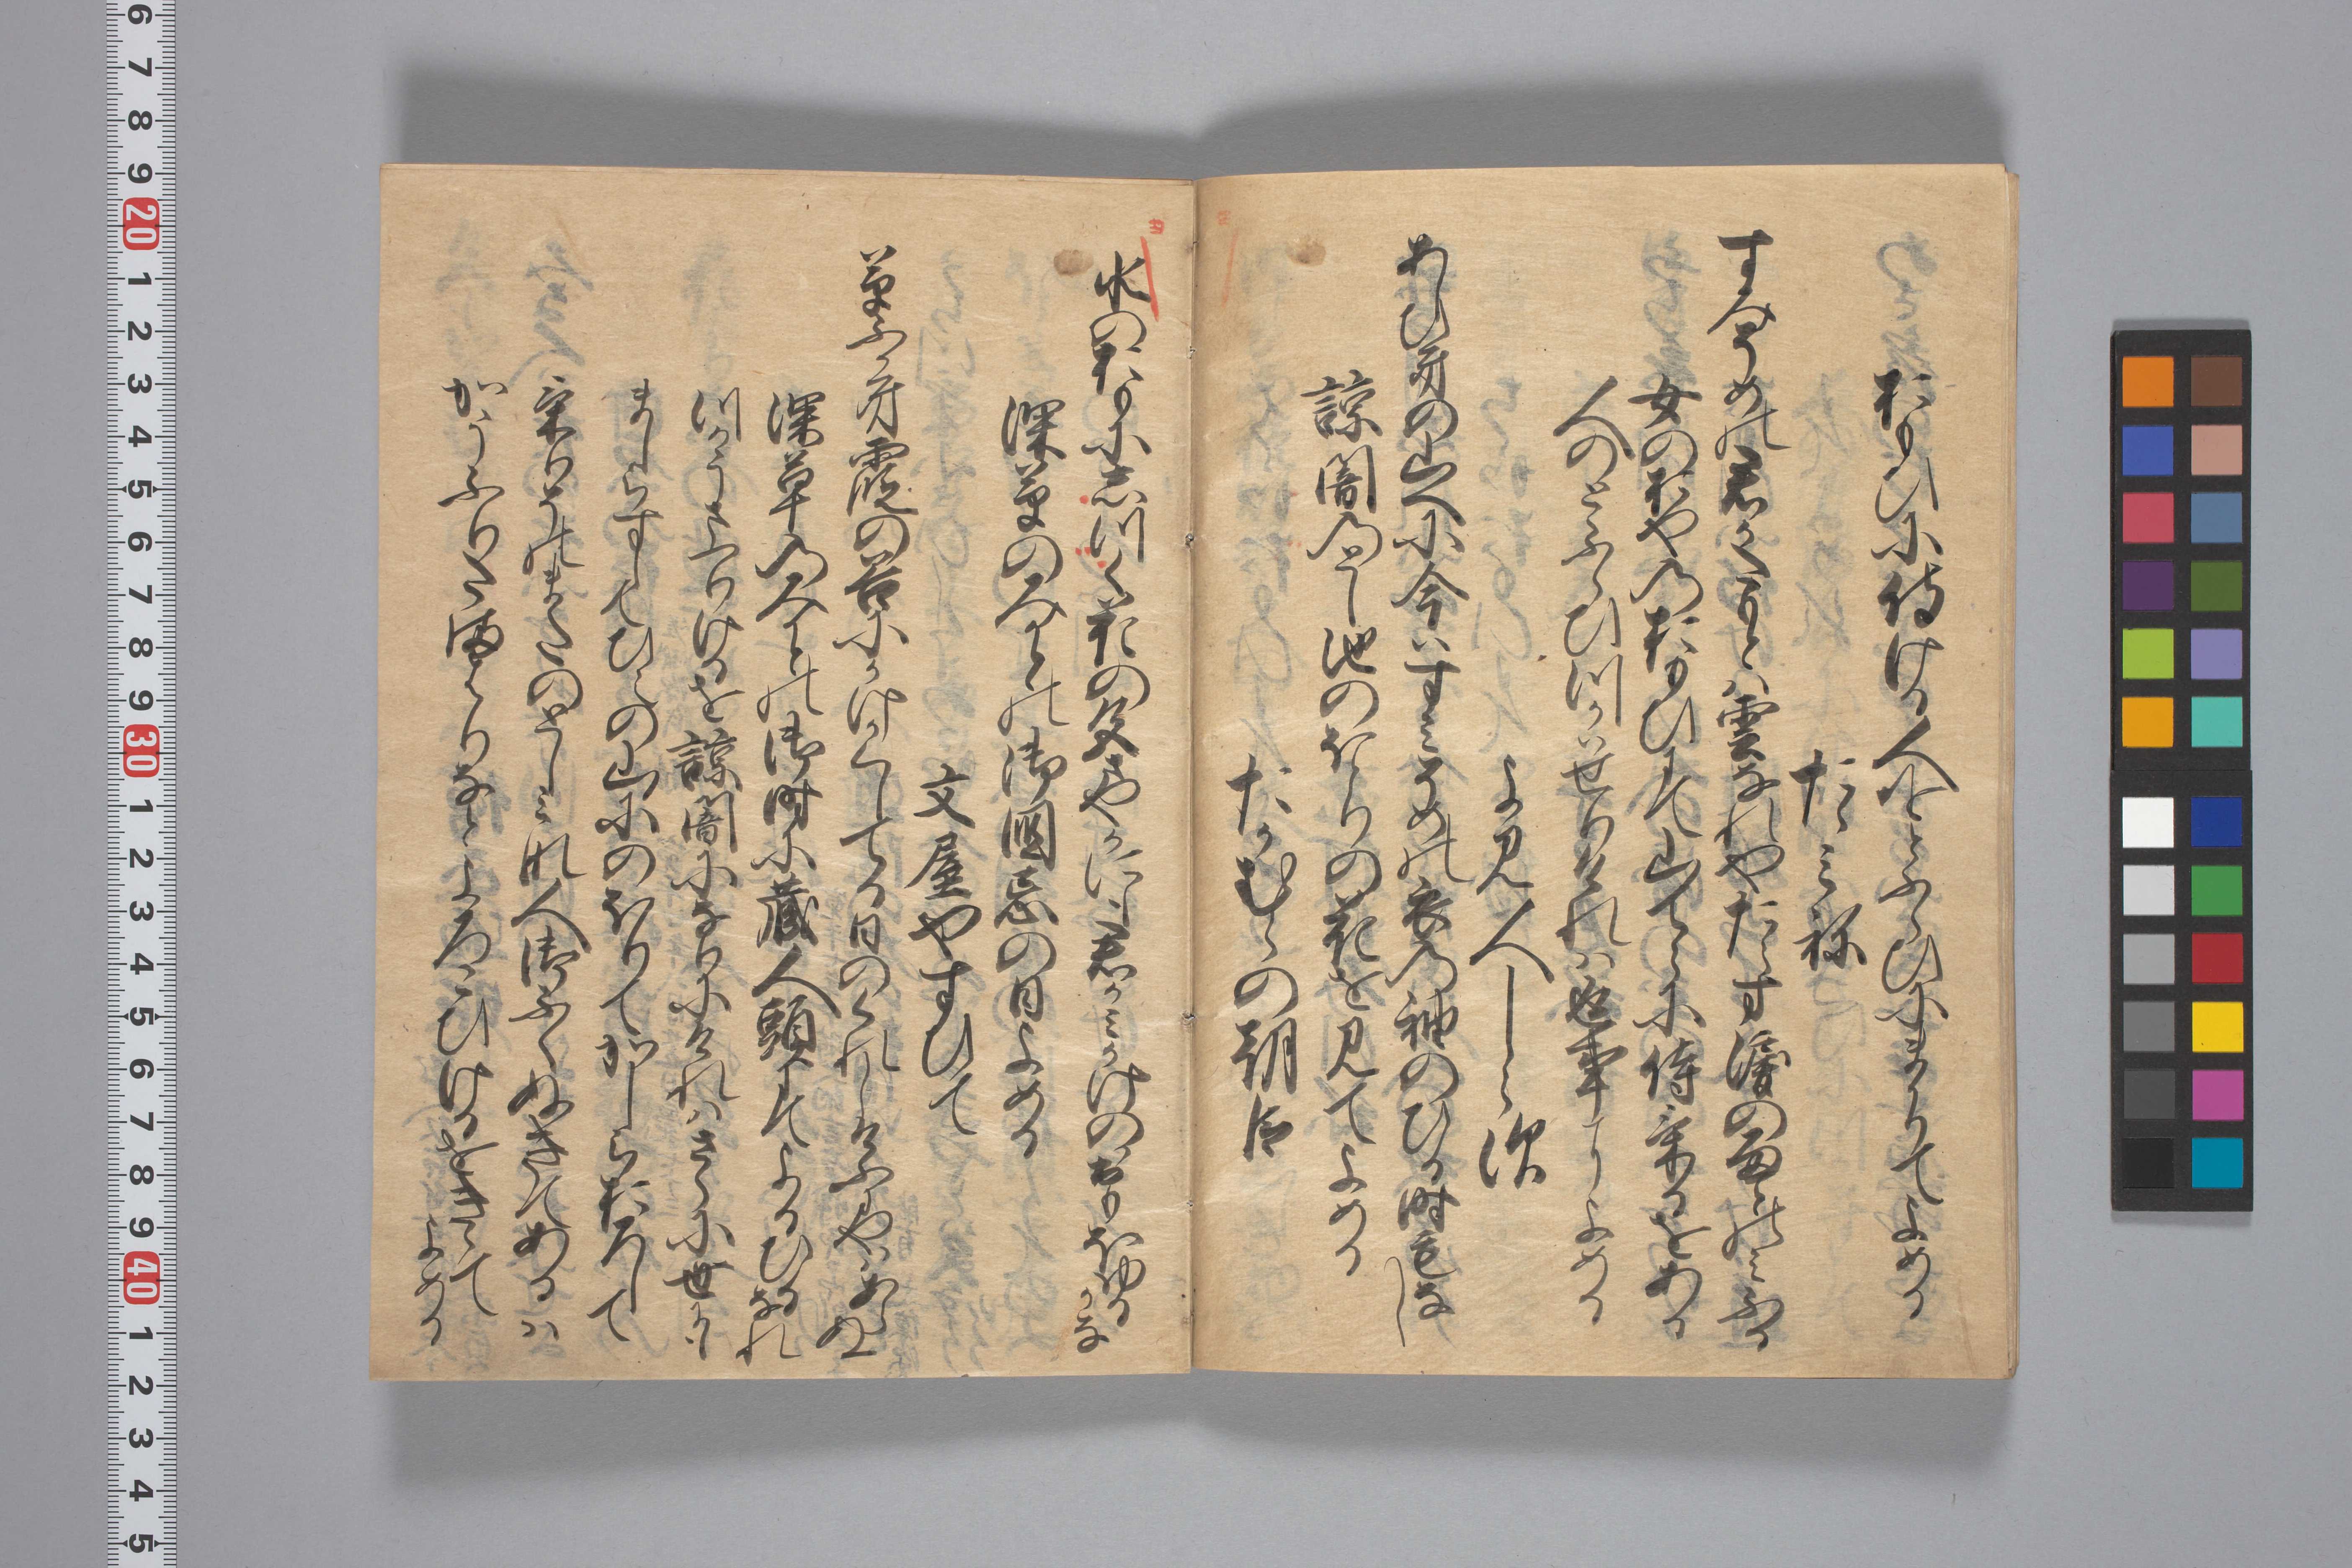 おもひに侍ける人をとふらひにまかりてよめる
たゝみね
すみそめの君かたもとは雲なれやたえす涙の雨とのみふる
女のおやのおもひにて山てらに侍けるをある
人のとふらひつかはせりけれは返事によめる
よみ人しらす
あしひきの山へに今はすみそめの衣の袖のひる時もなし
諒闇のとし池のほとりの花を見てよめる
たかむらの朝臣
水のおもにしつく花の色さやかにも君かみかけのおもほゆるかな
深草のみかとの御国忌の日よめる
文屋やすひて
草ふかき霞の谷にかけかくしてる日のくれしけふにやはあらぬ
深草のみかとの御時に蔵人頭にてよるひるなれ
つかうまつりけるを諒闇になりにけれはさらに世にも
ましらすしてひえの山にのほりてかしらおろして
けり又のとしみな人御ふくぬきてあるは
かうふりたまはりなとよろこひけるをきゝて
よめる